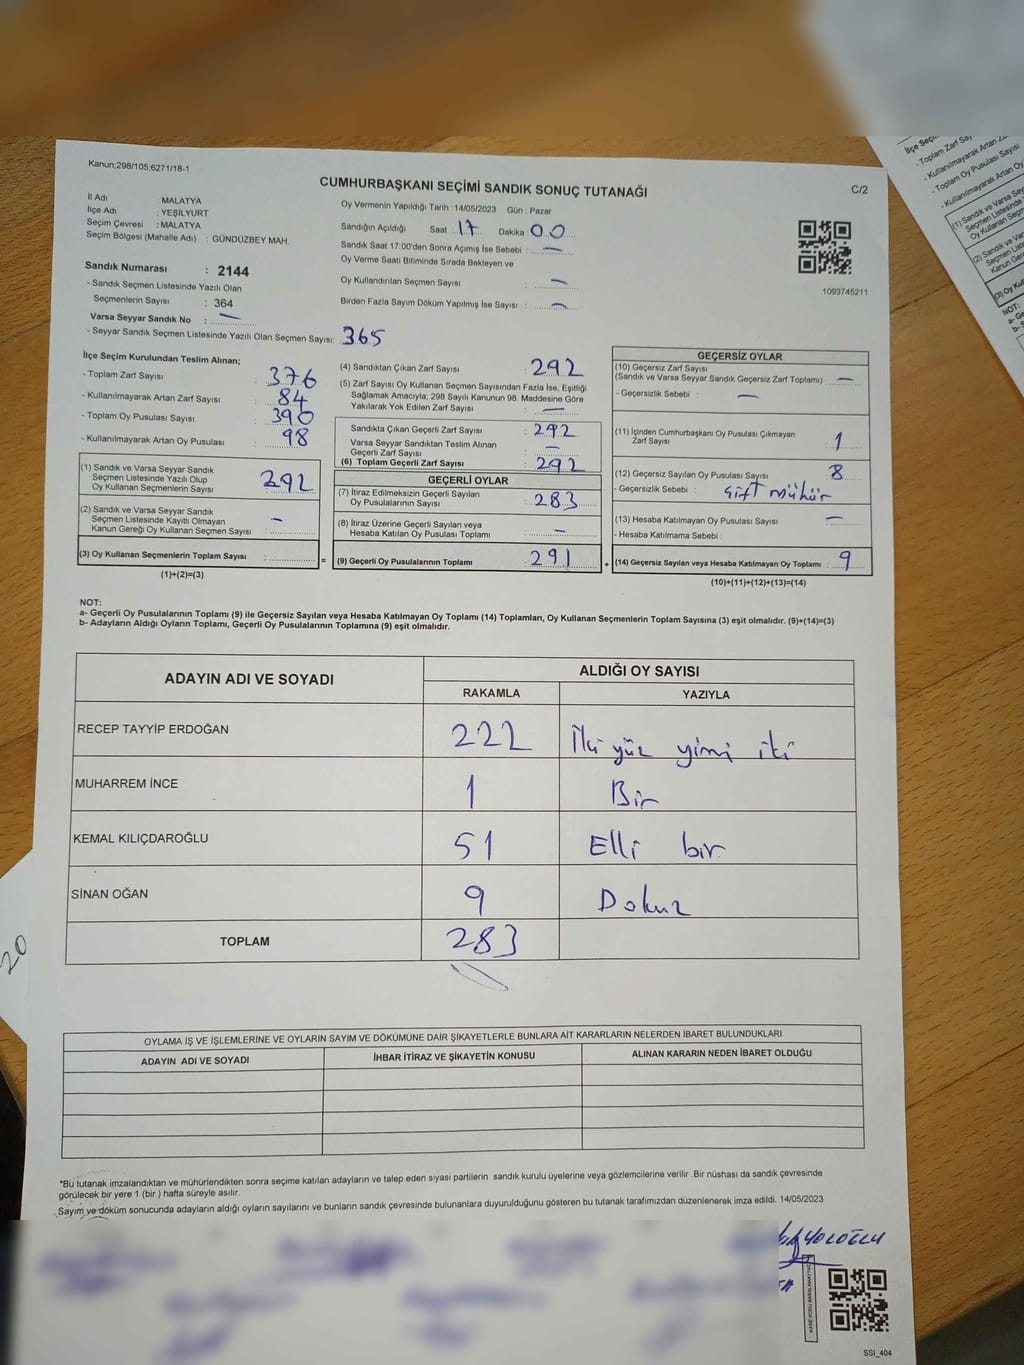 Kanun;298/105;6271/18-1
CUMHURBAŞKANI SEÇİMİ SANDIK SONUÇ TUTANAĞI
C/2
İl Adı : MALATYA
İlçe Adı : YEŞİLYURT
Seçim Çevresi : MALATYA
Seçim Bölgesi (Mahalle Adı) : GÜNDÜZBEY MAH.
Sandık Numarası : 2144
- Sandık Seçmen Listesinde Yazılı Olan
Seçmenlerin Sayısı : 364
Varsa Seyyar Sandık No : —
- Seyyar Sandık Seçmen Listesinde Yazılı Olan Seçmen Sayısı: 365
Oy Vermenin Yapıldığı Tarih : 14/05/2023 Gün : Pazar
Sandığın Açıldığı Saat : 17 Dakika : 00
Sandık Saat 17:00'den Sonra Açımış İse Sebebi : —
Oy Verme Saati Bitiminde Sırada Bekleyen ve
Oy Kullandırılan Seçmen Sayısı : —
Birden Fazla Sayım Döküm Yapılmış İse Sayısı : —
1093745211
İlçe Seçim Kurulundan Teslim Alınan;
- Toplam Zarf Sayısı : 376
- Kullanılmayarak Artan Zarf Sayısı : 84
- Toplam Oy Pusulası Sayısı : 390
- Kullanılmayarak Artan Oy Pusulası : 98
(1) Sandık ve Varsa Seyyar Sandık
Seçmen Listesinde Yazılı Olup
Oy Kullanan Seçmenlerin Sayısı : 292
(2) Sandık ve Varsa Seyyar Sandık
Seçmen Listesinde Kayıtlı Olmayan
Kanun Gereği Oy Kullanan Seçmen Sayısı : —
(3) Oy Kullanan Seçmenlerin Toplam Sayısı :
(1)+(2)=(3)
(4) Sandıktan Çıkan Zarf Sayısı : 292
(5) Zarf Sayısı Oy Kullanan Seçmen Sayısından Fazla İse, Eşitliği
Sağlamak Amacıyla; 298 Sayılı Kanunun 98. Maddesine Göre
Yakılarak Yok Edilen Zarf Sayısı : —
Sandıkta Çıkan Geçerli Zarf Sayısı : 292
Varsa Seyyar Sandıktan Teslim Alınan
Geçerli Zarf Sayısı : —
(6) Toplam Geçerli Zarf Sayısı : 292
GEÇERLİ OYLAR
(7) İtiraz Edilmeksizin Geçerli Sayılan
Oy Pusulalarının Sayısı : 283
(8) İtiraz Üzerine Geçerli Sayılan veya
Hesaba Katılan Oy Pusulası Toplamı : —
= (9) Geçerli Oy Pusulalarının Toplamı : 291 +
GEÇERSİZ OYLAR
(10) Geçersiz Zarf Sayısı
(Sandık ve Varsa Seyyar Sandık Geçersiz Zarf Toplamı) : —
- Geçersizlik Sebebi : —
(11) İçinden Cumhurbaşkanı Oy Pusulası Çıkmayan
Zarf Sayısı : 1
(12) Geçersiz Sayılan Oy Pusulası Sayısı : 8
- Geçersizlik Sebebi : Çift mühür
(13) Hesaba Katılmayan Oy Pusulası Sayısı : —
- Hesaba Katılmama Sebebi :
(14) Geçersiz Sayılan veya Hesaba Katılmayan Oy Toplamı : 9
(10)+(11)+(12)+(13)=(14)
NOT:
a- Geçerli Oy Pusulalarının Toplamı (9) ile Geçersiz Sayılan veya Hesaba Katılmayan Oy Toplamı (14) Toplamları, Oy Kullanan Seçmenlerin Toplam Sayısına (3) eşit olmalıdır. (9)+(14)=(3)
b- Adayların Aldığı Oyların Toplamı, Geçerli Oy Pusulalarının Toplamına (9) eşit olmalıdır.
ADAYIN ADI VE SOYADI
ALDIĞI OY SAYISI
RAKAMLA YAZIYLA
RECEP TAYYİP ERDOĞAN 222 İki yüz yimi iki
MUHARREM İNCE 1 Bir
KEMAL KILIÇDAROĞLU 51 Elli bir
SİNAN OĞAN 9 Dokuz
TOPLAM 283
OYLAMA İŞ VE İŞLEMLERİNE VE OYLARIN SAYIM VE DÖKÜMÜNE DAİR ŞİKAYETLERLE BUNLARA AİT KARARLARIN NELERDEN İBARET BULUNDUKLARI
ADAYIN ADI VE SOYADI İHBAR İTİRAZ VE ŞİKAYETİN KONUSU ALINAN KARARIN NEDEN İBARET OLDUĞU
*Bu tutanak imzalandıktan ve mühürlendikten sonra seçime katılan adayların ve talep eden siyasi partilerin sandık kurulu üyelerine veya gözlemcilerine verilir .Bir nüshası da sandık çevresinde
görülecek bir yere 1 (bir ) hafta süreyle asılır.
Sayım ve döküm sonucunda adayların aldığı oyların sayılarını ve bunların sandık çevresinde bulunanlara duyurulduğunu gösteren bu tutanak tarafımızdan düzenlenerek imza edildi. 14/05/2023
SSI_404
20